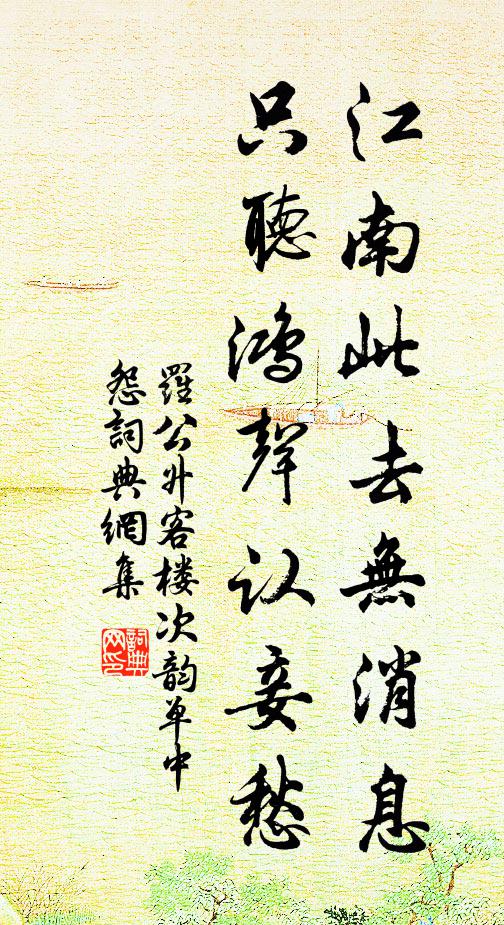 江南此去無消息
只聽鴻聲认妾愁
羅公升客楼次韵草中
怨詞典網集
詞典
网印